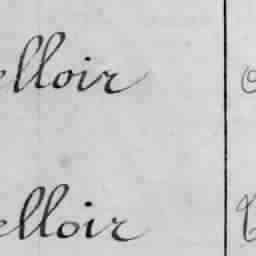 elloir
elloir